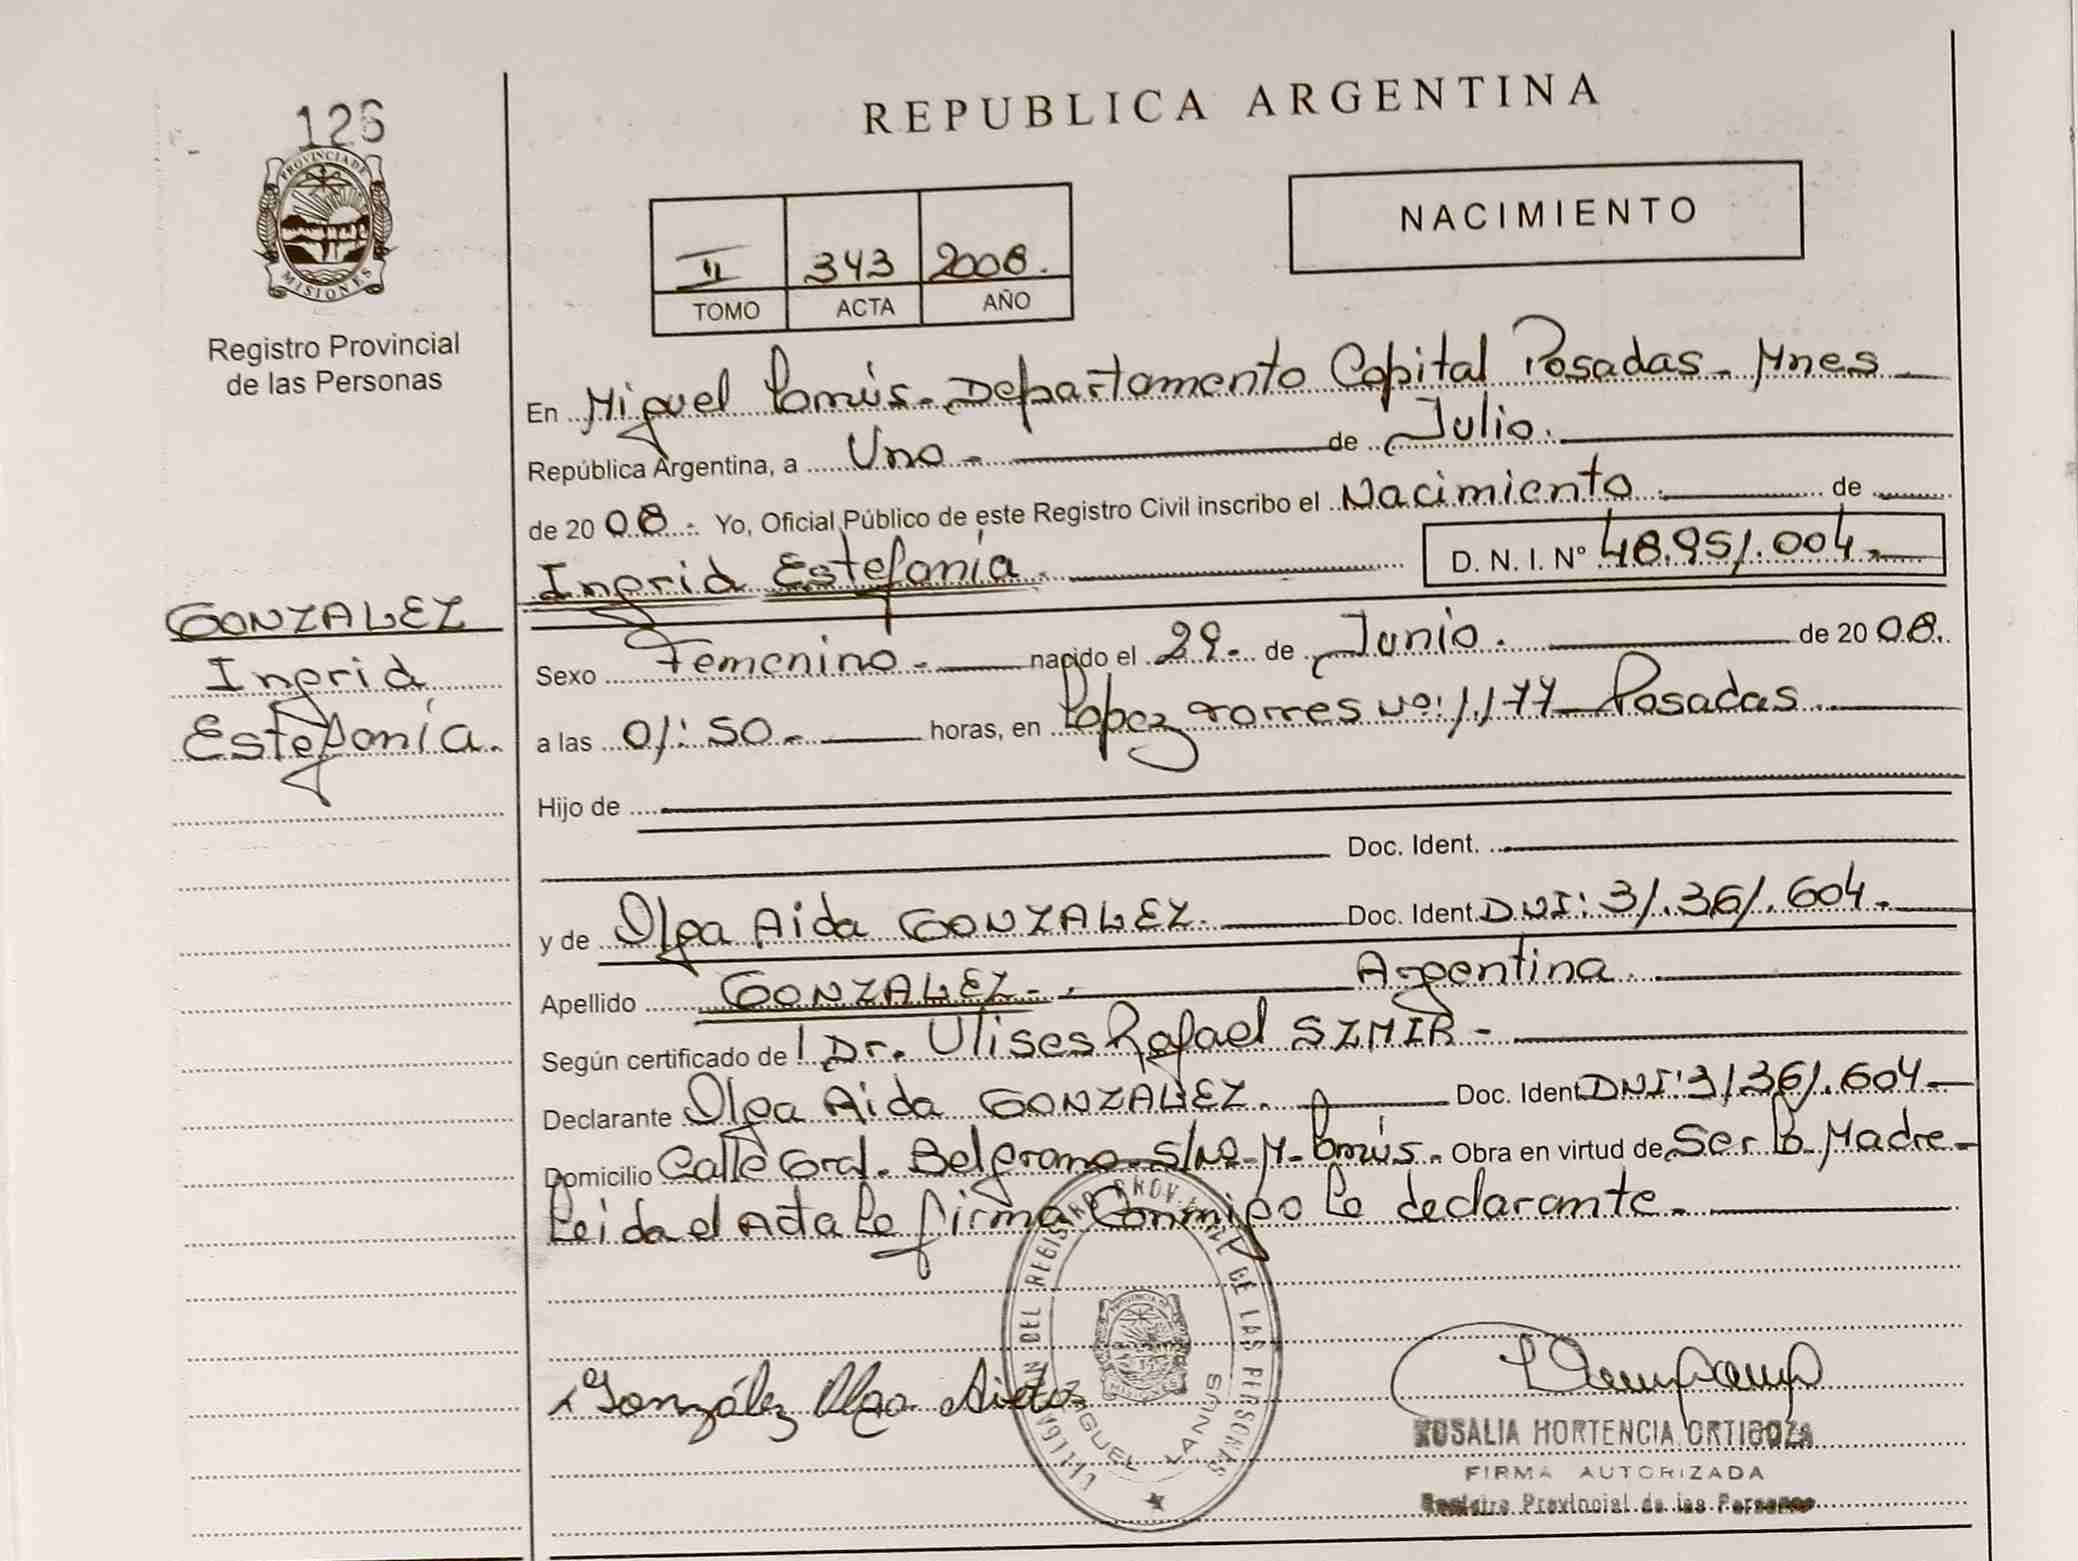 126
PROVINCIA DE
MISIONES
Registro Provincial
de las Personas
GONZALEZ
Ingrid
Estefanía.
REPUBLICA ARGENTINA
NACIMIENTO
II 343 2008.
TOMO ACTA AÑO
En Miguel Lanús. Departamento Capital Posadas - Mnes
República Argentina, a Uno - de Julio.
de 20 08. Yo, Oficial Público de este Registro Civil inscribo el Nacimiento de
Ingrid Estefanía. D. N. I. Nº 48.951.004.-
Sexo Femenino - nacido el 29. de Junio. de 20 08.
a las 01:50 - horas, en Lopez torres Nº: 1.177 - Posadas
Hijo de
Doc. Ident.
y de Olga Aida GONZALEZ. Doc. Ident. DNI: 31.361.604.
Apellido GONZALEZ - Argentina.
Según certificado de Dr. Ulises Rafael SZMIR -
Declarante Olga Aida GONZALEZ. Doc. Ident. DNI: 31.361.604 -
Domicilio Calle Gral. Belgrano - S/Nº - M - Lanús. Obra en virtud de Ser la Madre -
Leida el Acta la firma Conmigo la declarante.
González Olga Aida
DEL REGISTRO PROVINCIAL DE LAS PERSONAS
MIGUEL LANUS
ROSALIA HORTENCIA ORTIGOZA
FIRMA AUTORIZADA
Registro Provincial de las Personas